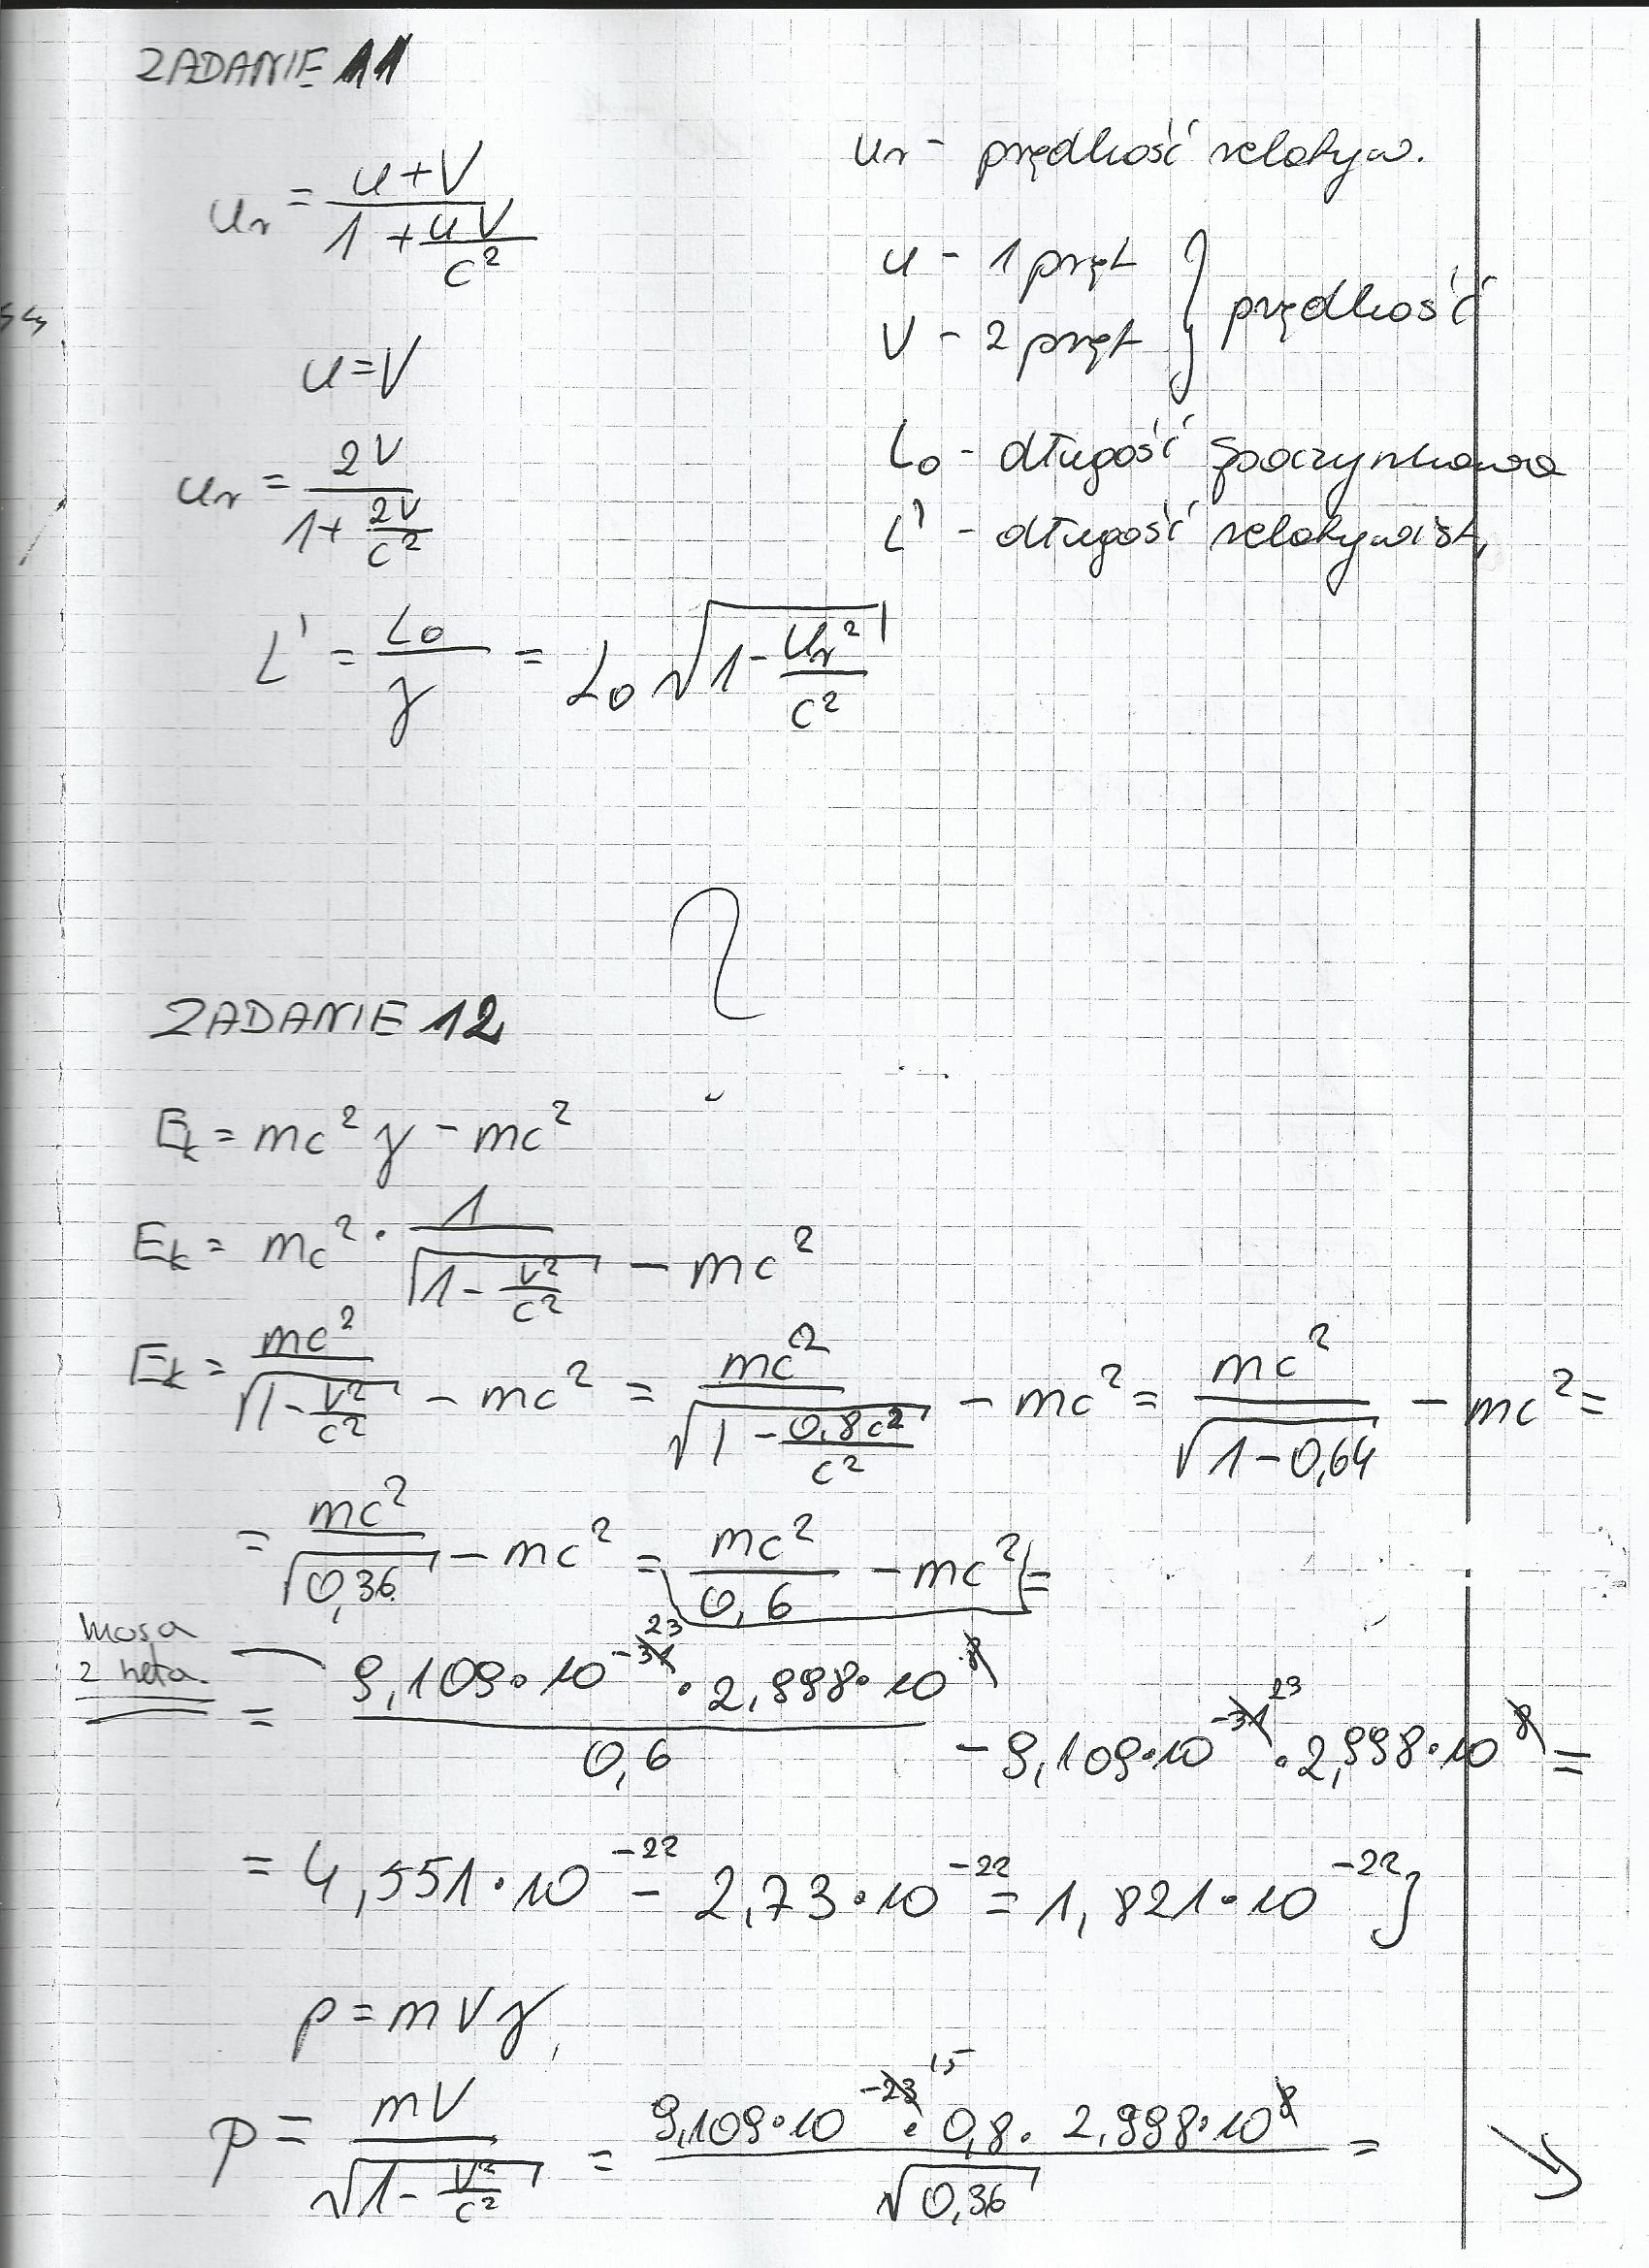 ZADANIE 11
u_r = \frac{u+V}{1+\frac{uV}{c^2}}
u_r - prędkość relatyw.
u - 1 pręt
V - 2 pręt } prędkość
u=V
u_r = \frac{2V}{1+\frac{2V}{c^2}}
L_0 - długość spoczynkowa
L' - długość relatywist,
L' = \frac{L_0}{γ} = L_0 \sqrt{1-\frac{u_r^2}{c^2}}
ZADANIE 12
E_k = mc^2 γ - mc^2
E_k = mc^2 · \frac{1}{\sqrt{1-\frac{V^2}{c^2}}} - mc^2
E_k = \frac{mc^2}{\sqrt{1-\frac{V^2}{c^2}}} - mc^2 = \frac{mc^2}{\sqrt{1-\frac{0,8c^2}{c^2}}} - mc^2 = \frac{mc^2}{\sqrt{1-0,64}} - mc^2 =
= \frac{mc^2}{\sqrt{0,36}} - mc^2 = \frac{mc^2}{0,6} - mc^2 =
masa
z neta
= \frac{9,109·10^{-23} · 2,998·10}{0,6} - 9,109·10^{-23} · 2,998·10 =
= 4,551·10^{-22} - 2,73·10^{-22} = 1,821·10^{-22} J
p = mVγ
p = \frac{mV}{\sqrt{1-\frac{V^2}{c^2}}} = \frac{9,109·10^{-15} · 0,8 · 2,998·10}{\sqrt{0,36}} =